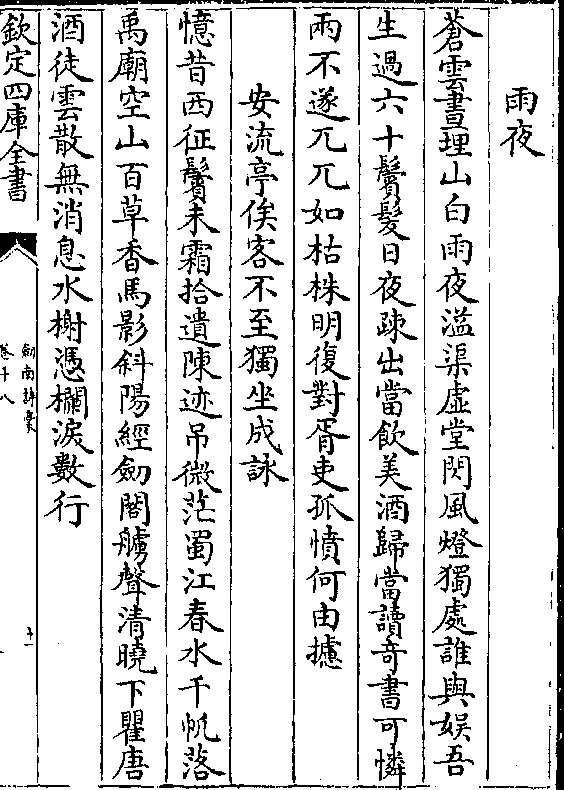 雨夜
蒼雲晝埋山白雨夜溢渠虚堂閃風燈獨處誰與娱吾
生過六十鬢髮日夜疎出當飲美酒歸當讀竒書可憐
兩不遂兀兀如枯株明復對胥吏孤憤何由攄
安流亭俟客不至獨坐成詠
憶昔西征鬢未霜拾遺陳迹吊微茫蜀江春水千帆落
禹廟空山百草香馬影斜陽經劒閣艣聲清曉下瞿唐
酒徒雲散無消息水榭憑欄淚數行
欽定四庫全書
劒南詩稾
卷十八
十一